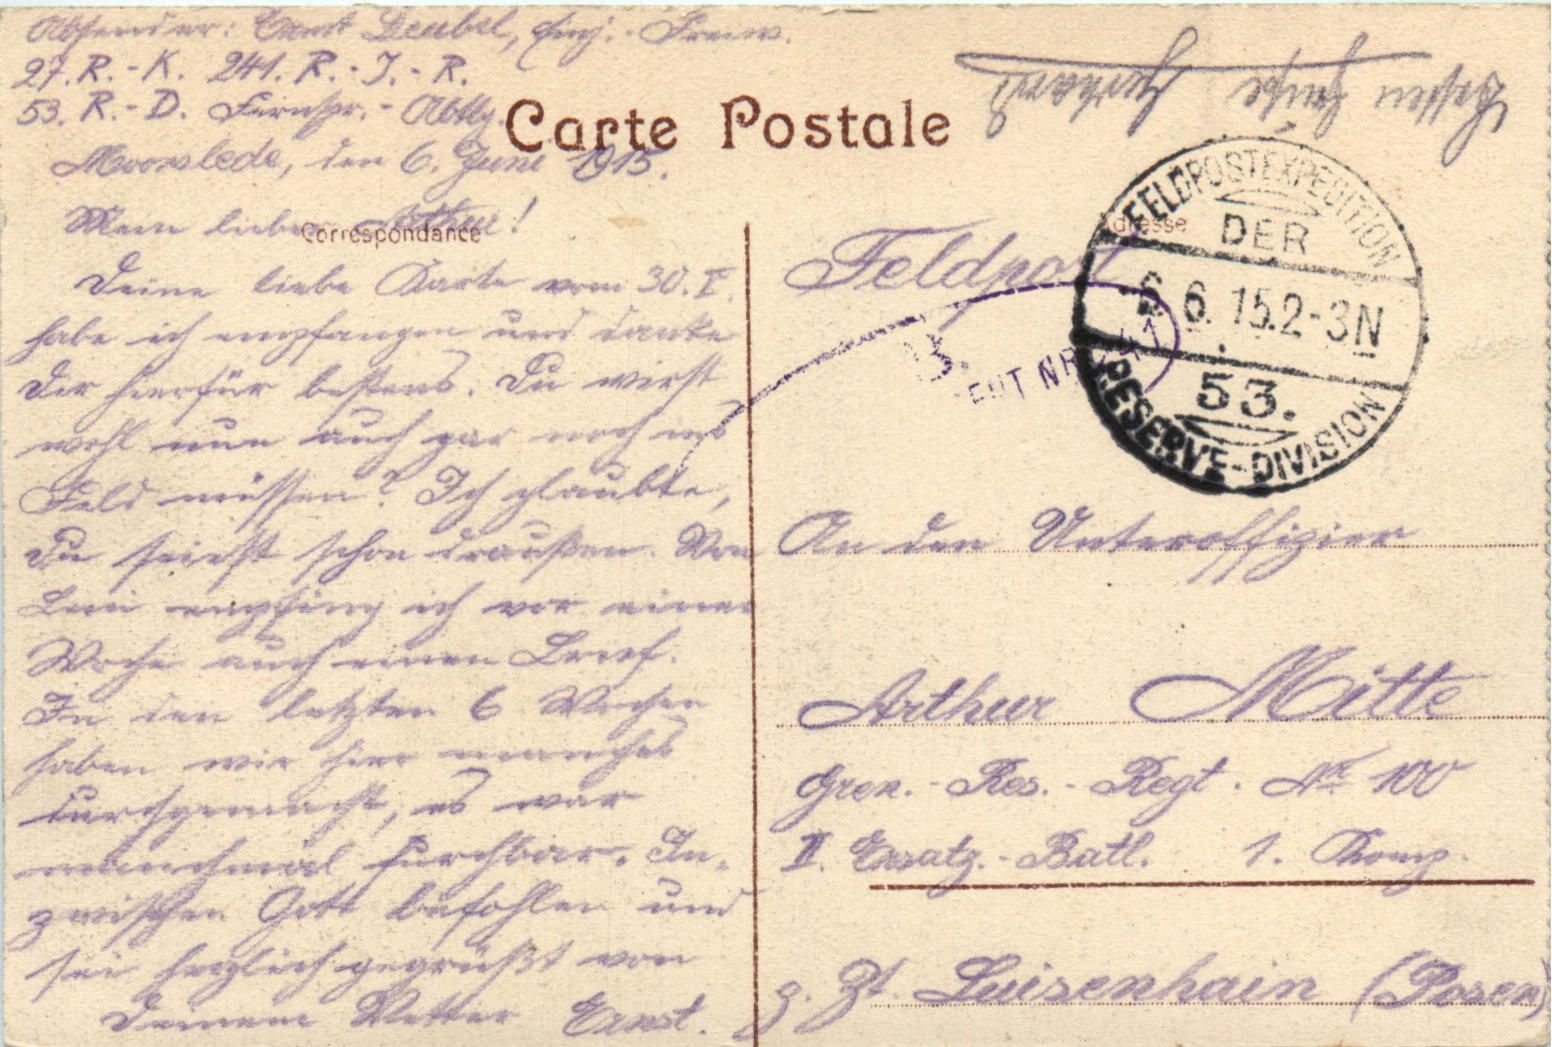 Absender: Ernst Deubel, Einj.-Freiw.
27. R.-K. 241. R.-I.-R.
53. R.-D. Fernspr.-Abtlg.
Carte Postale
Moorslede, den 6. Juni 1915.
Mein lieber Arthur!
Correspondance
Deine liebe Karte vom 30. V.
habe ich empfangen und danke
Dir hierfür bestens. Du wirst
wohl nun auch gar noch ins
Feld müssen? Ich glaubte,
Du seiest schon draußen. Von
empfing ich vor einer
Woche auch einen Brief.
In den letzten 6 Wochen
haben wir hier manches
durchgemacht, es war
manchmal furchbar. In-
zwischen Gott befohlen und
sei herzlich gegrüßt von
Deinem Vetter Ernst.
Adresse
Feldpost
FELDPOSTEXPEDITION
DER
6. 6. 15. 2-3N
53.
RESERVE-DIVISION
An den Unteroffizier
Arthur Mitte
Gren.-Res.-Regt. Nr. 100
II. Ersatz.-Batl. 1. Komp.
z. Zt. Luisenhain (Posen)